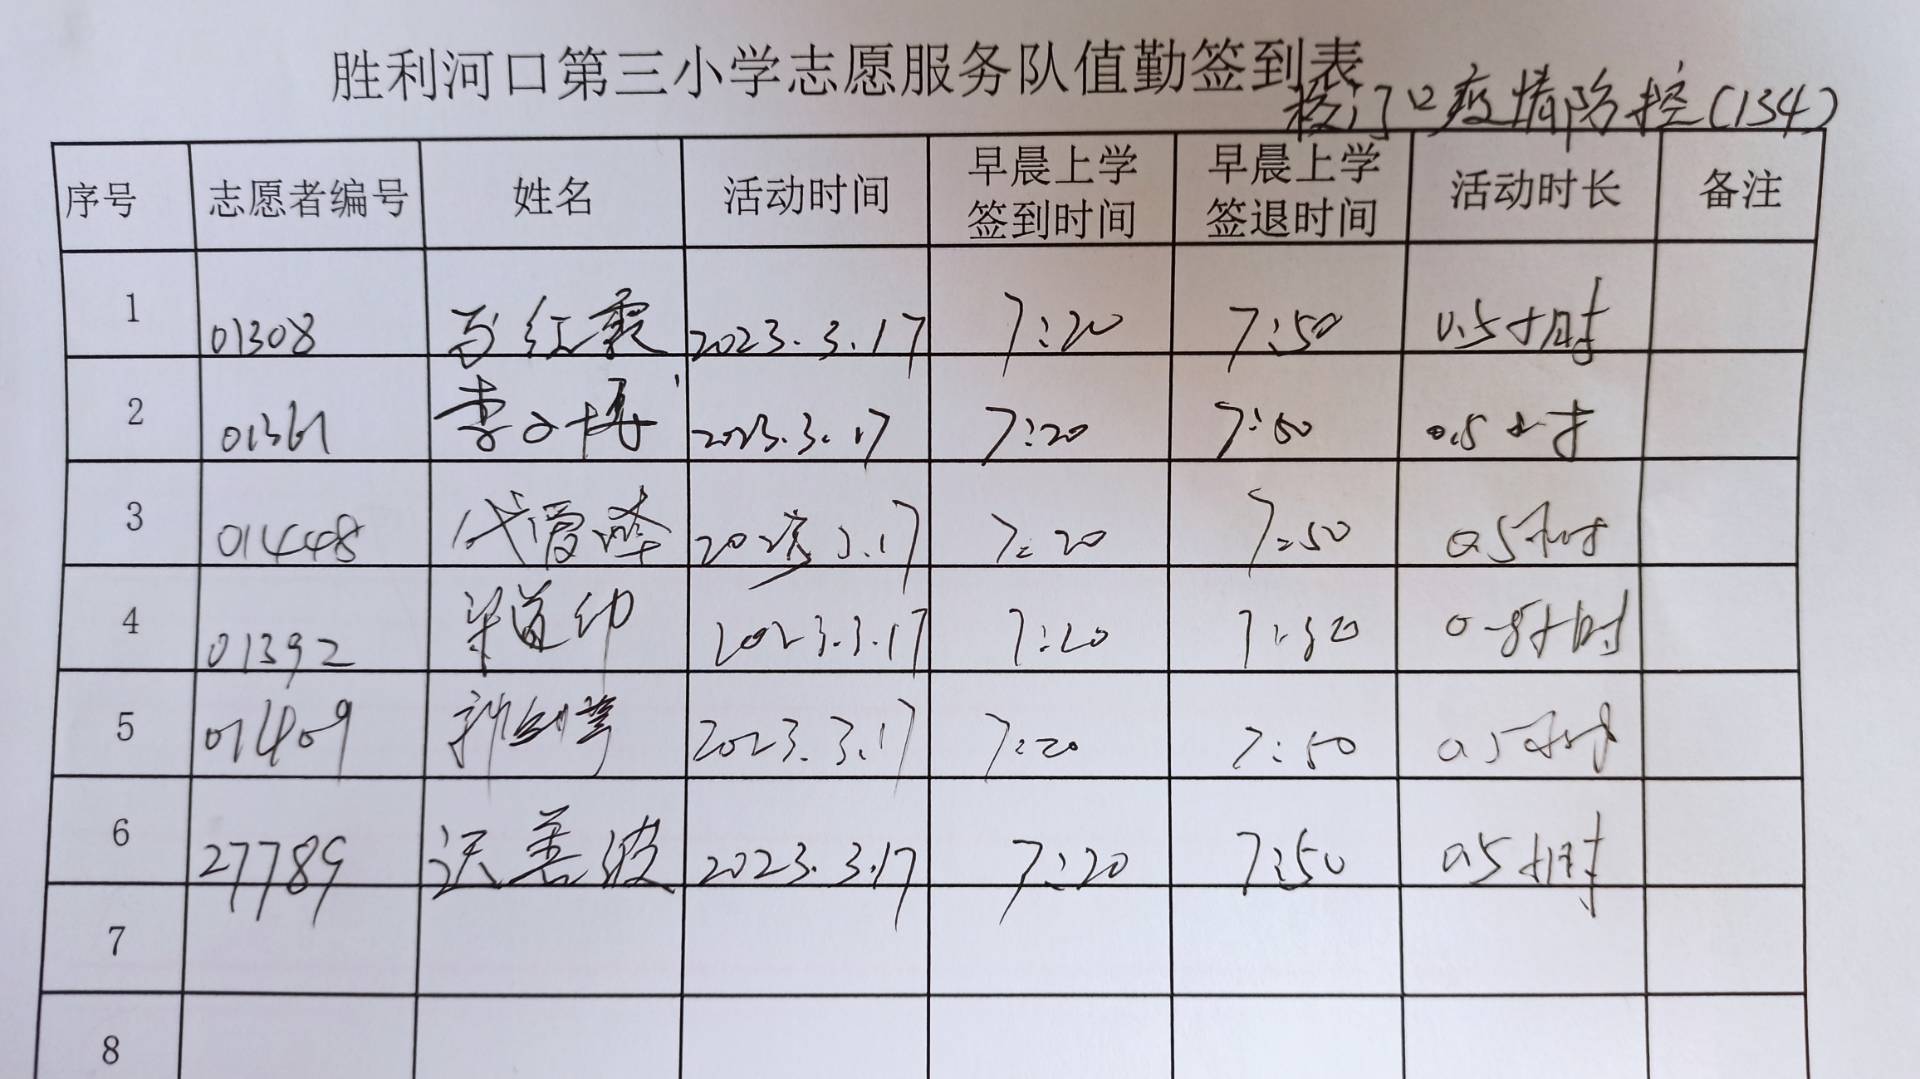 胜利河口第三小学志愿服务队值勤签到表
校门口疫情防控(134)
序号 志愿者编号 姓名 活动时间 早晨上学签到时间 早晨上学签退时间 活动时长 备注
1 01308 马红霞 2023.3.17 7:20 7:50 0.5小时
2 01361 李文博 2023.3.17 7:20 7:50 0.5小时
3 01448 代爱峰 2023.3.17 7:20 7:50 0.5小时
4 01392 2023.3.17 7:20 7:50 0.5小时
5 01409 2023.3.17 7:20 7:50 0.5小时
6 27789 善波 2023.3.17 7:20 7:50 0.5小时
7
8